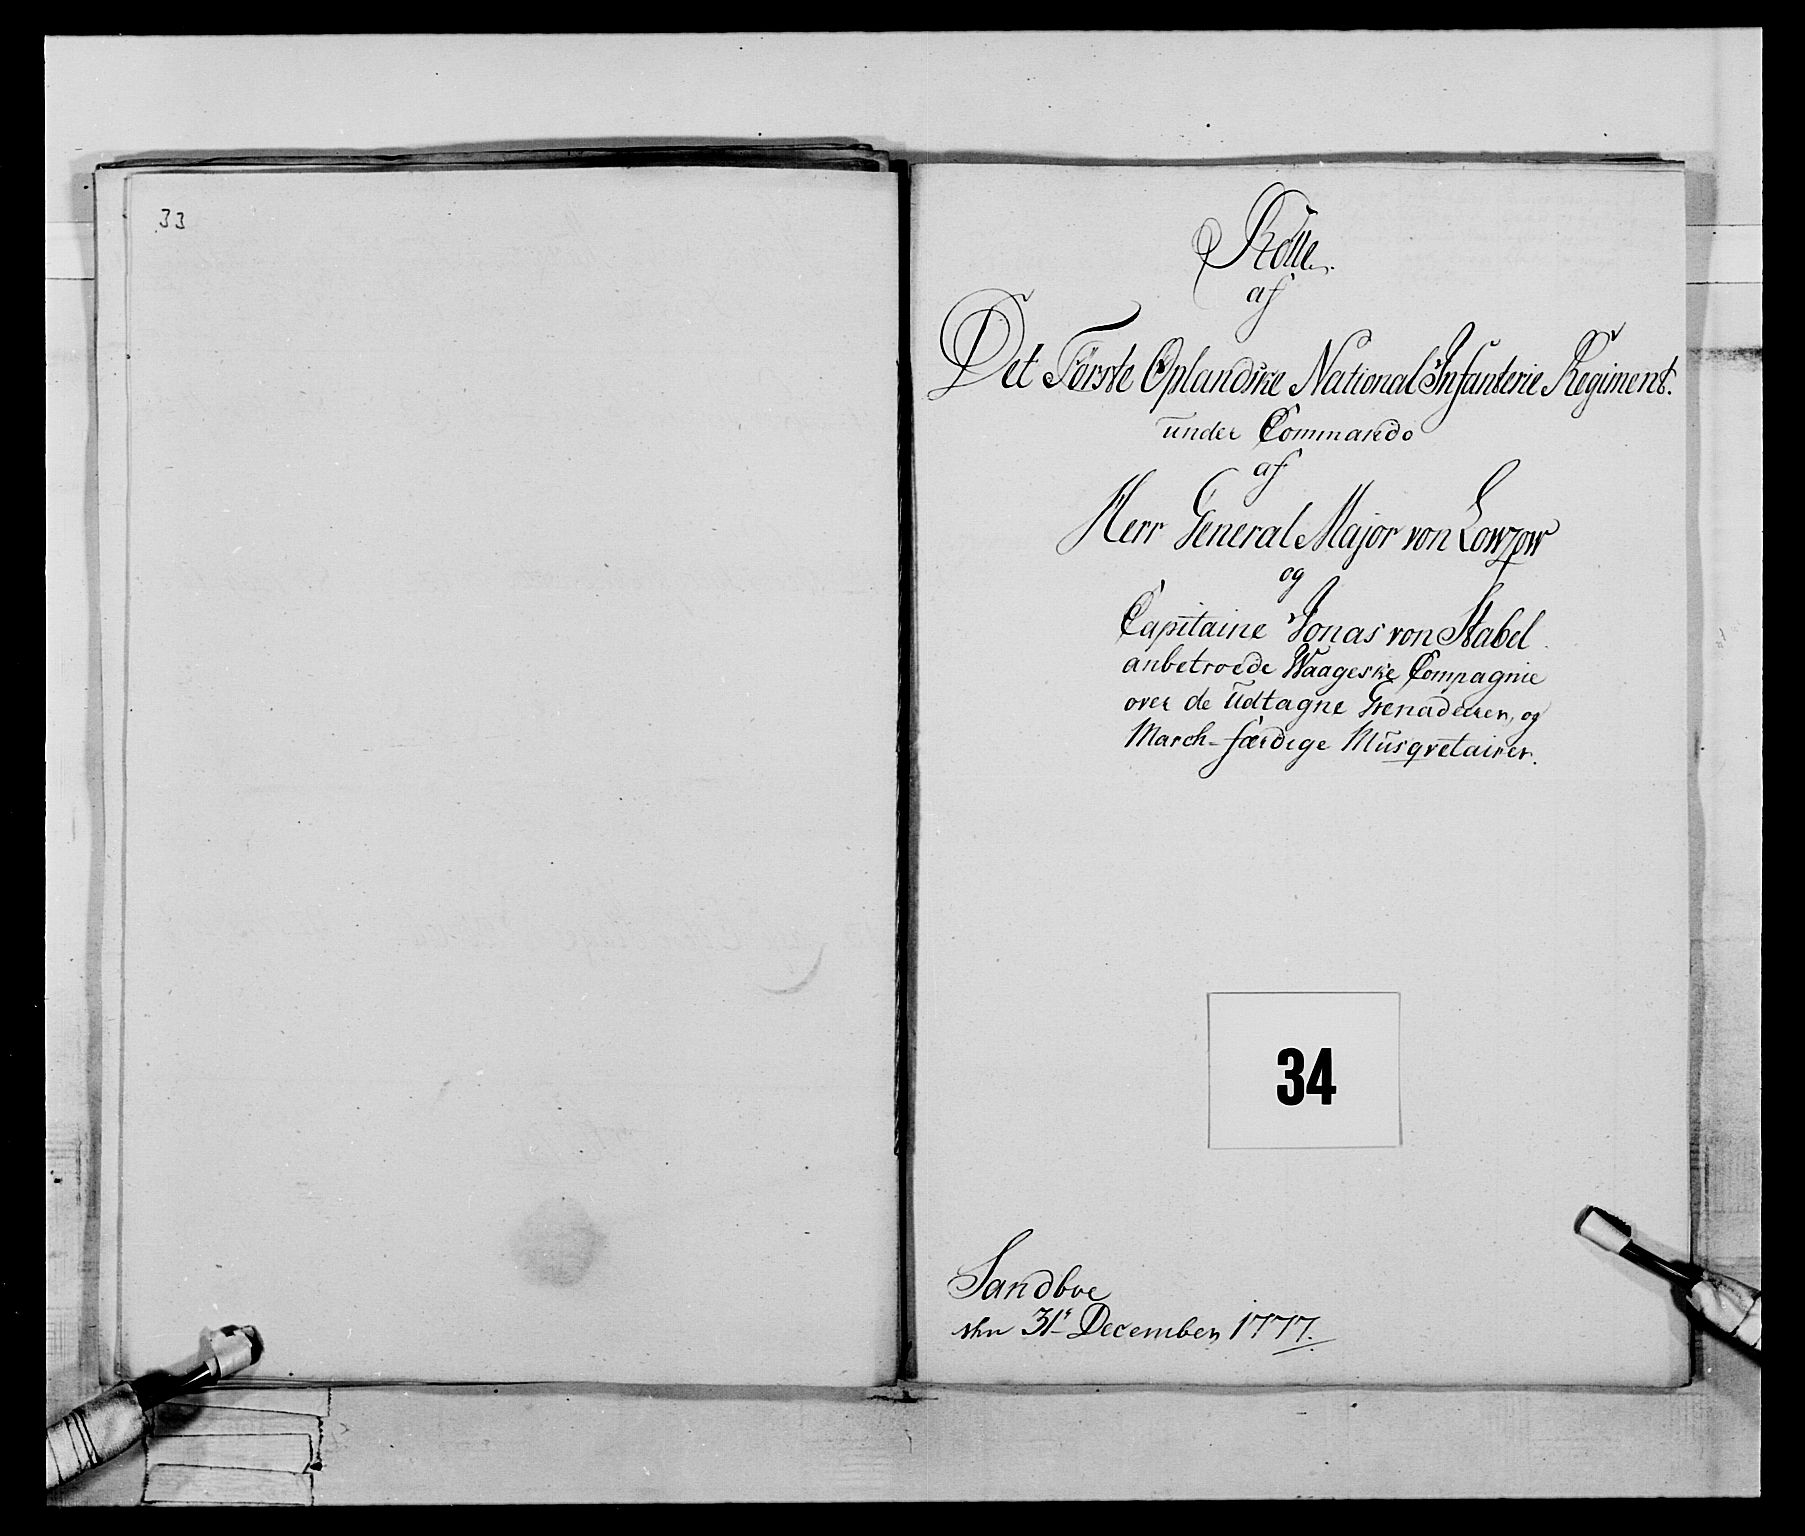 33
Rolle
af
Det Første Oplandske National Infanterie Regiment.
under Commando
af
Herr General Major von Lowzow
og
Capitaine Jonas von Stabel
anbetroede Waageske Compagnie
over de udtagne Grenadeerer, og
March-færdige Musqvetairer.
34
Sandboe
den 31te December 1777.